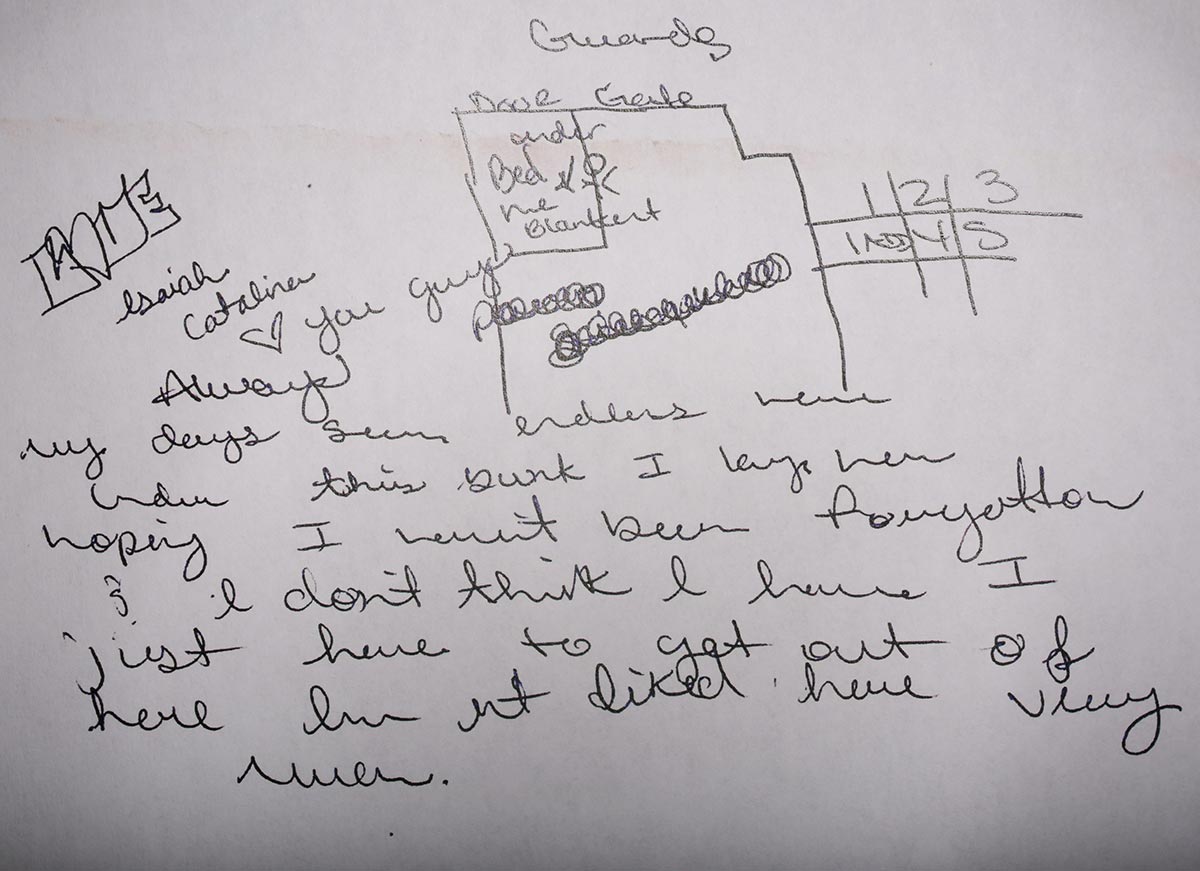 Guards
Door Gate
under
Bed
me
Blankert
1 2 3
4 5
Isaiah
Catalina
you guys
Always
my days seem endless here
under this bunk I lays here
hoping I hevn't been fourgotton
I don't think I have I
just have to get out of
here Im nt liked here very
much.